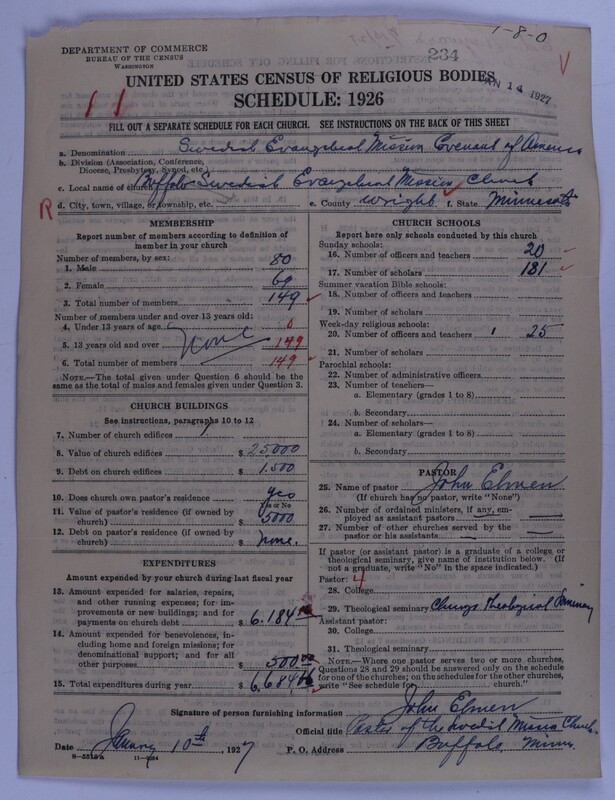 1-8-0
DEPARTMENT OF COMMERCE
BUREAU OF THE CENSUS
WASHINGTON
234
JAN 14 1927
UNITED STATES CENSUS OF RELIGIOUS BODIES
SCHEDULE: 1926
11
FILL OUT A SEPARATE SCHEDULE FOR EACH CHURCH. SEE INSTRUCTIONS ON THE BACK OF THIS SHEET
a. Denomination Swedish Evangelical Mission Covenant of America
b. Division (Association, Conference, Diocese, Presbytery, Synod, etc.)
c. Local name of church Buffalo Swedish Evangelical Mission Church
R d. City, town, village, or township, etc. e. County Wright f. State Minnesota
MEMBERSHIP
Report number of members according to definition of member in your church
Number of members, by sex:
1. Male 80
2. Female 69
3. Total number of members 149
Number of members under and over 13 years old:
4. Under 13 years of age None 0
5. 13 years old and over 149
6. Total number of members 149
NOTE.—The total given under Question 6 should be the same as the total of males and females given under Question 3.
CHURCH BUILDINGS
See instructions, paragraphs 10 to 12
7. Number of church edifices 1
8. Value of church edifices $ 25,000
9. Debt on church edifices $ 1.500
10. Does church own pastor's residence yes
(Yes or No)
11. Value of pastor's residence (if owned by church) $ 5000
12. Debt on pastor's residence (if owned by church) $ None.
EXPENDITURES
Amount expended by your church during last fiscal year
13. Amount expended for salaries, repairs, and other running expenses; for improvements or new buildings; and for payments on church debt $ 6.184
14. Amount expended for benevolences, including home and foreign missions; for denominational support; and for all other purposes $ 500 00
15. Total expenditures during year $ 6,684
CHURCH SCHOOLS
Report here only schools conducted by this church
Sunday schools:
16. Number of officers and teachers 20
17. Number of scholars 181
Summer vacation Bible schools:
18. Number of officers and teachers
19. Number of scholars
Week-day religious schools:
20. Number of officers and teachers 1 25
21. Number of scholars
Parochial schools:
22. Number of administrative officers
23. Number of teachers—
a. Elementary (grades 1 to 8)
b. Secondary
24. Number of scholars—
a. Elementary (grades 1 to 8)
b. Secondary
PASTOR
25. Name of pastor John Elmen
(If church has no pastor, write "None")
26. Number of ordained ministers, if any, employed as assistant pastors —
27. Number of other churches served by the pastor or his assistants —
If pastor (or assistant pastor) is a graduate of a college or theological seminary, give name of institution below. (If not a graduate, write "No" in the space indicated.)
Pastor: 4
28. College
29. Theological seminary Chicago Theological Seminary
Assistant pastor:
30. College
31. Theological seminary
NOTE.—Where one pastor serves two or more churches, Questions 28 and 29 should be answered only on the schedule for one of the churches; on the schedules for the other churches, write "See schedule for church."
Signature of person furnishing information John Elmen
Official title Pastor of the Swedish Mission Church
Date January 10th, 1927 P. O. Address Buffalo, Minn.
11—9264